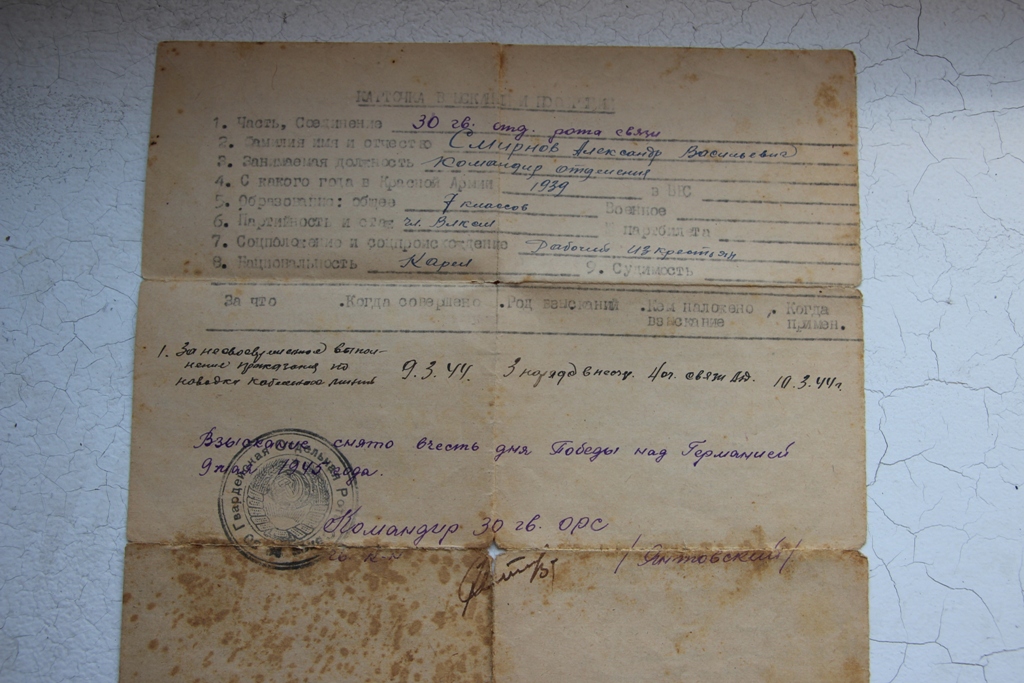 КАРТОЧКА ВЗЫСКАНИЙ И ПООЩРЕНИЙ
1. Часть, Соединение 30 гв. отд. рота связи
2. Фамилия имя и отчество Смирнов Александр Васильевич
3. Занимаемая должность Командир отделения
4. С какого года в Красной Армии 1939 в ВКС
5. Образование: общее 7 классов Военное
6. Партийность и стаж чл. Влксм партбилета
7. Соцположение и соцпроисхождение Рабочий из крестьян
8. Национальность Карел 9. Судимость
За что .Когда совершено .Род взысканий .Кем наложено взыскание . Когда примен.
1. За несвоевременное выпол-
нение приказания по
наводке кабельной линии 9.3.44. 3 наряда 10.3.44г.
Взыскание снято вчесть дня Победы над Германией
9 мая 1945 года.
Командир 30 гв. ОРС
/Янтовский/
30 Гвардейская Отдельная Рота